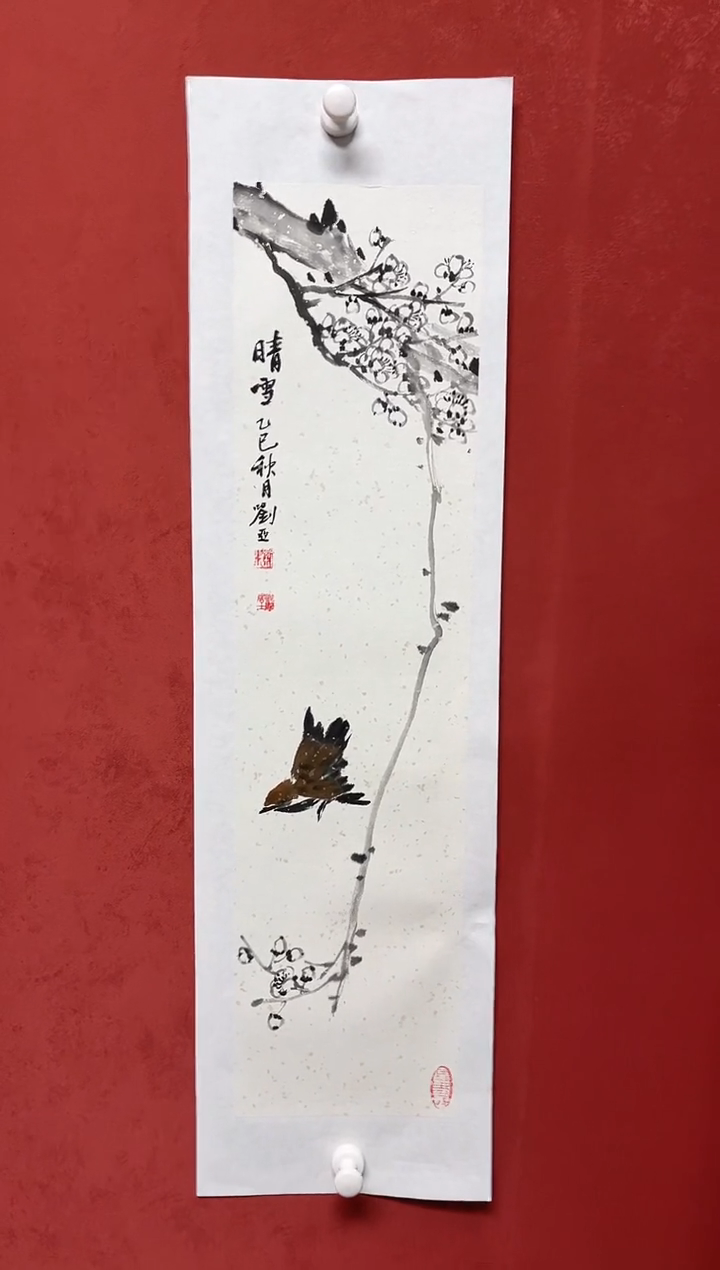 晴雪 乙巳秋月 劉亚